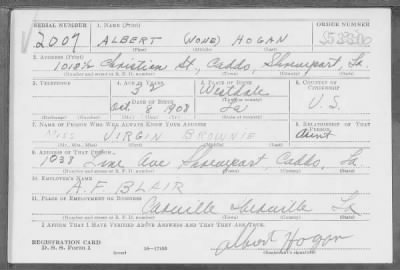 SERIAL NUMBER
1. NAME (Print)
ORDER NUMBER
V2007
ALBERT (NONE) HOGAN
(First) (Middle) (Last)
2. ADDRESS (Print)
1018½ Christian St, Caddo, Shreveport, La.
(Number and street or R. F. D. number) (Town) (County) (State)
3. TELEPHONE
4. AGE IN YEARS
5. PLACE OF BIRTH
6. COUNTRY OF CITIZENSHIP
Westdale
(Town or county)
DATE OF BIRTH
Oct. 8 1908
La
U.S.
(Mo.) (Day) (Yr.)
(State or country)
7. NAME OF PERSON WHO WILL ALWAYS KNOW YOUR ADDRESS
8. RELATIONSHIP OF THAT PERSON
MISS VIRGIN BROWNIE
Aunt
(Mr., Mrs., Miss) (First) (Middle) (Last)
9. ADDRESS OF THAT PERSON
1038 Line Ave Shreveport, Caddo, La
(Number and street or R. F. D. number) (Town) (County) (State)
10. EMPLOYER'S NAME
A.F. BLAIR
11. PLACE OF EMPLOYMENT OR BUSINESS
La
(Number and street or R. F. D. number) (Town) (County) (State)
I AFFIRM THAT I HAVE VERIFIED ABOVE ANSWERS AND THAT THEY ARE TRUE.
REGISTRATION CARD
D. S. S. Form 1
(over)
16—17105
Albert Hogan
(Registrant's signature)